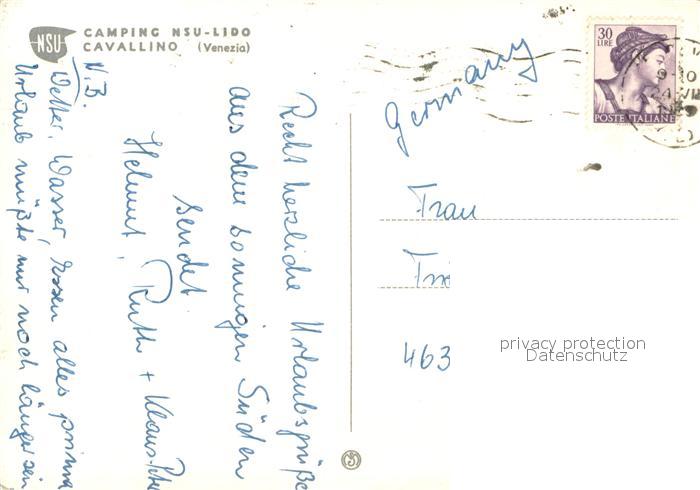 NSU
CAMPING NSU-LIDO
CAVALLINO (Venezia)
Recht herzliche Urlaubsgrüße
aus dem sonnigen Süden
sendet
Helmut, Ruth + Klaus-Peter
N.B.
Wetter, Wasser, Essen alles prima
Urlaub müßte nur noch länger sein
30
LIRE
POSTE ITALIANE
Germany
Frau
463
privacy protection
Datenschutz